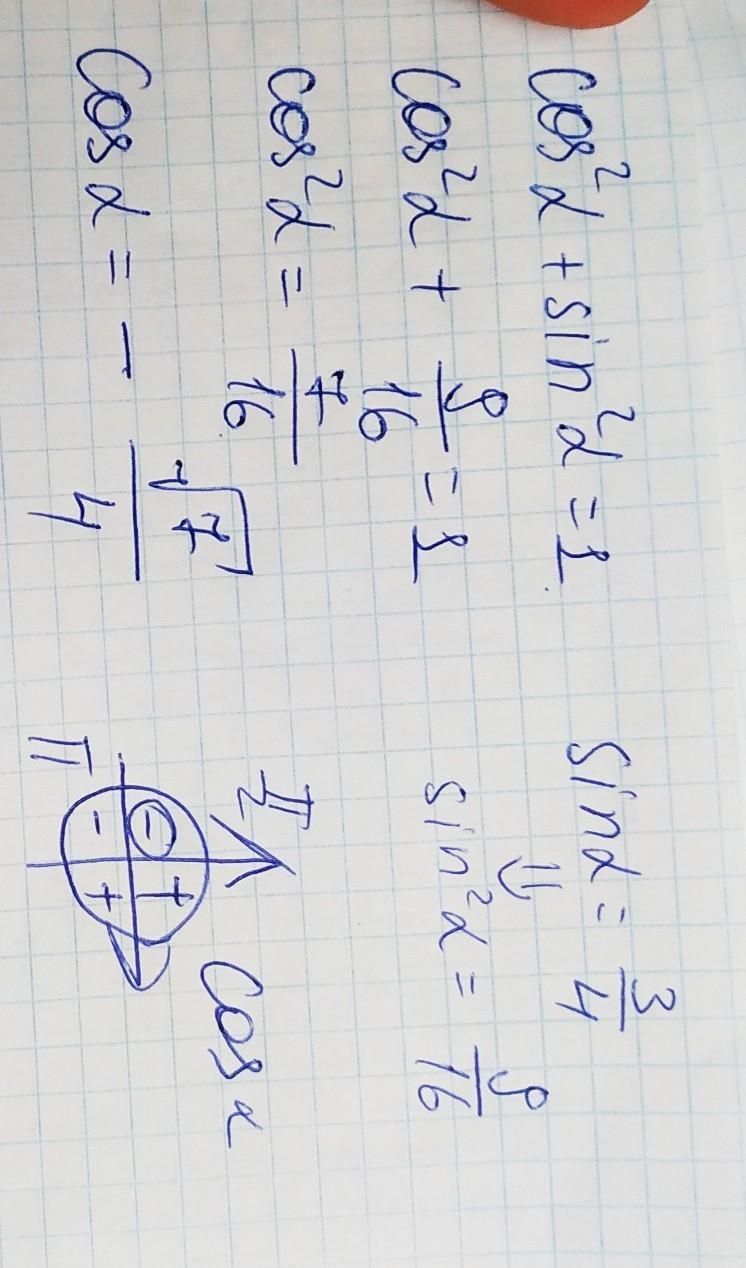 cos²α + sin²α = 1
cos²α + 9/16 = 1
cos²α = 7/16
cos α = - √7/4
sin α = 3/4
⇓
sin²α = 9/16
π/2
cos x
π
- +
- +